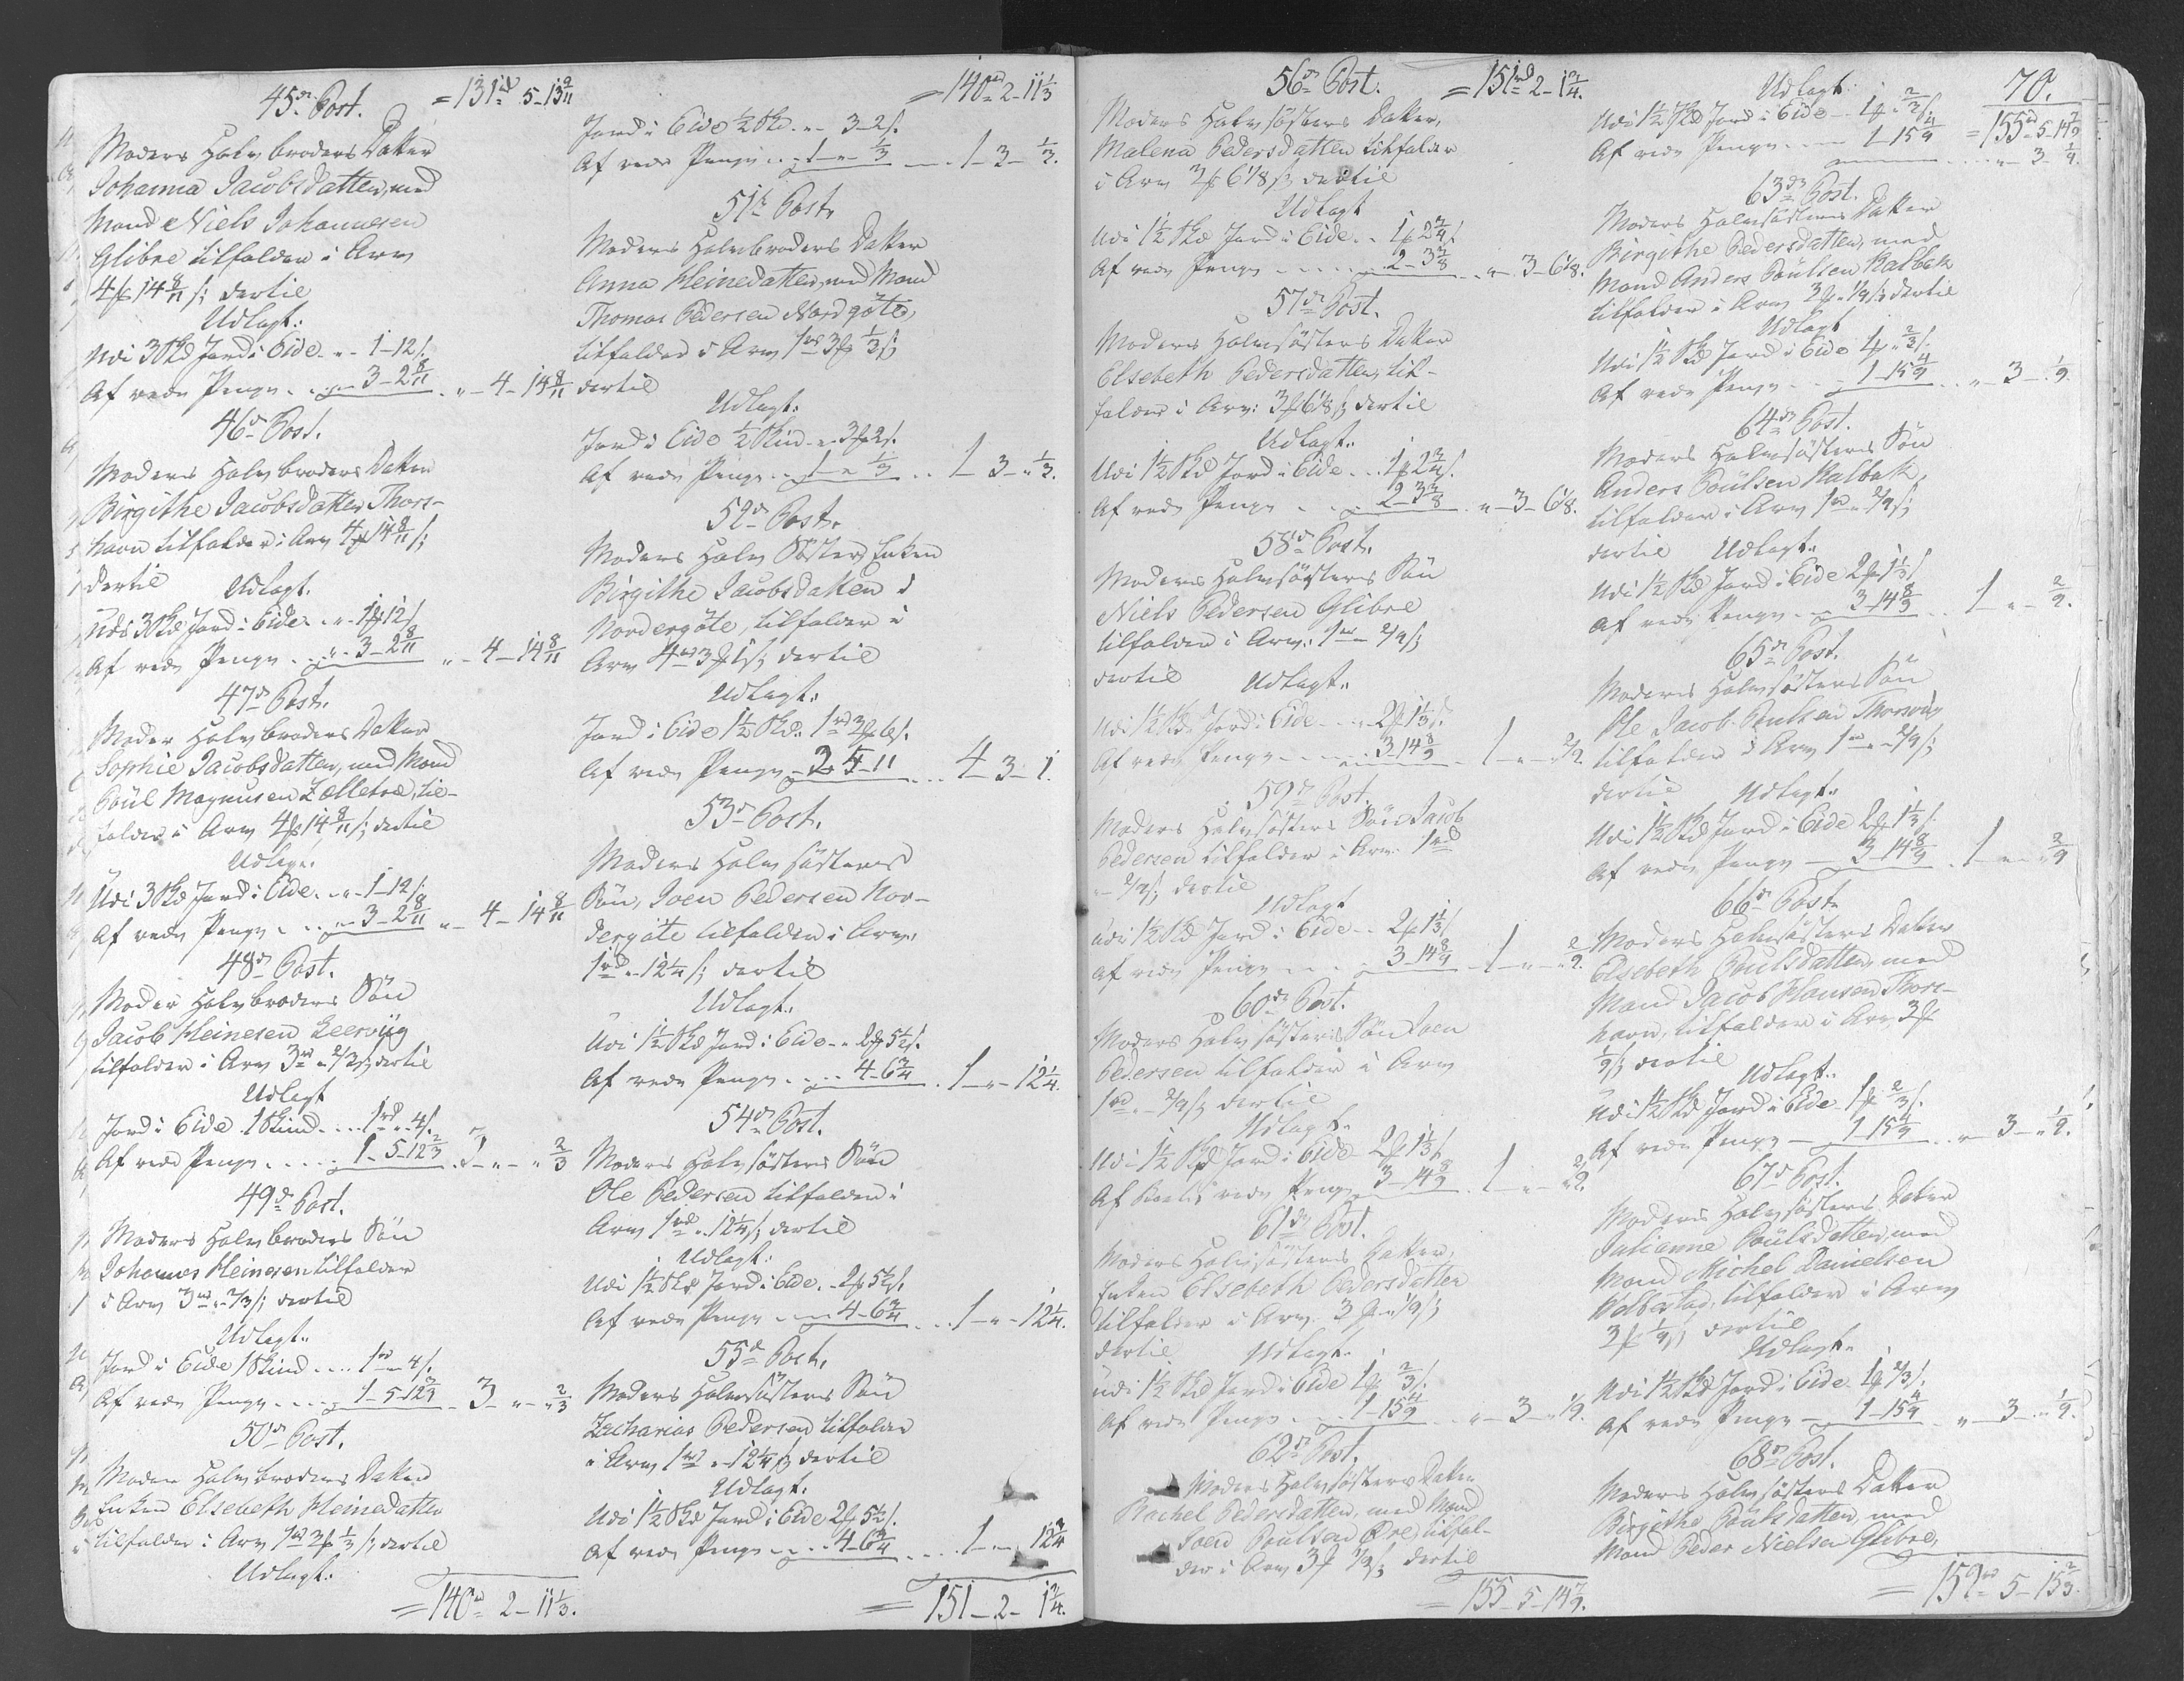 45de Post. = 131rd 5-13 9/11
Moders Halvbroders Datter
Johanna Jacobsdatter, med
Mand Niels Johannesen
Glibre tilfalder i Arv
4 14 8/11 s; dertil
Udlagt:
Udi 3 Skd Jord i Eide - " 1-12 s.
Af rede Penge . . " 3-2 8/11 . " - 4-14 8/11
46de Post.
Moders Halvbroders Datter
Birgithe Jacobsdatter Thors-
havn tilfalder i Arv 4 14 8/11 s;
dertil Udlagt.
Udi 3 Skd Jord i Eide . . " - 1 12 s
Af rede Penge . . " - 3-2 8/11 " - 4-14 8/11
47de Post.
Moder Halvbroders Datter
Sophie Jacobsdatter, med Mand
Poul Magnusen Zelletræ, til-
falder i Arv 4 14 8/11 s; dertil
Udlagt.
Udi 3 Skd Jord i Eide . . " - 1-12 s.
Af rede Penge . . " - 3-2 8/11 " - 4-14 8/11
48de Post.
Moder Halvbroders Søn
Jacob Heinesen Leervüg
tilfalder i Arv 3rd " 2/3 s; dertil
Udlagt
Jord i Eide 1 Skind . . . 1rd " 4 s.
Af rede Penge . . . . 1-5-12 2/3 . 3 - " - " 2/3
49de Post.
Moders Halvbroders Søn
Johannes Heinesen tilfalder
i Arv 3rd " - 2/3 s; dertil
Udlagt.
Jord i Eide 1 Skind . . . . 1rd " 4 s.
Af rede Penge . . . . 1-5-12 2/3 . 3 - " - " 2/3
50de Post.
Moders Halvbroders Datter
Enken Elsebeth Heinedatter
tilfalder i Arv 1rd 3 1/3 s; dertil
Udlagt.
= 140rd 2-11 1/3.
= 140rd 2-11 1/3
Jord i Eide 1/2 Skd . " 3-2 s.
Af rede Penge . . - 1 - " 1/3 . . - 1-3- 1/3.
51de Post.
Moders Halvbroders Datter
Anna Heinedatter, med Mand
Thomas Pedersen Nordgöte,
tilfalder i Arv 1rd 3 1/3 s;
dertil
Udlagt:
Jord i Eide 1/2 Skind - " 3 2 s.
Af rede Penge . . 1 - " 1/3 . . 1-3-" 1/3.
52de Post.
Moders Halv Søster Enken
Birgithe Jacobsdatter i
Nordergöte, tilfalder i
Arv 4rd 3 1 s; dertil
Udlagt:
Jord i Eide 1 1/2 Skd. 1rd 3 6 s.
Af rede Penge - 2-5-11 . . . 4-3-1.
53de Post.
Moders Halvsøsters
Søn, Joen Pedersen Nor-
dergöte tilfalder i Arv:
1rd " - 12 1/4 s; dertil
Udlagt:
Udi 1 1/2 Skd Jord i Eide - " 2 5 1/2 s.
Af rede Penge . . . . 4-6 3/4 . 1 - " - 12 1/4.
54de Post.
Moders Halvsøsters Søn
Ole Pedersen tilfalder i
Arv 1rd " - 12 1/4 s; dertil
Udlagt:
Udi 1 1/2 Skd Jord i Eide. - 2 5 1/2 s.
Af rede Penge - . . - 4-6 3/4 . . . 1 - " - 12 1/4.
55de Post.
Moders Halvsøsters Søn
Zacharias Pedersen tilfalder
i Arv 1rd " - 12 1/4 s; dertil
Udlagt.
Udi 1 1/2 Skd Jord i Eide 2 5 1/2 s.
Af rede Penge . . . . 4-6 3/4 . . . . 1 - " - 12 1/4
= 151-2-1 3/4.
56de Post. = 151rd 2-1 3/4.
Moders Halvsøsters Datter,
Malena Pedersdatter tilfalder
i Arv 3 6 1/8 s; dertil
Udlagt
Udi 1 1/2 Skd Jord i Eide . . 1 2 3/4 s.
Af rede Penge . . . . . 2-3 3/8 . . " - 3-6 1/8.
57de Post.
Moders Halvsøsters Datter
Elsebeth Pedersdatter, til-
falder i Arv: 3 6 1/8 s; dertil
Udlagt.
Udi 1 1/2 Skd Jord i Eide . . . 1 2 3/4 s.
Af rede Penge . . . 2-3 3/8 . " - 3-6 1/8.
58de Post.
Moders Halvsøsters Søn
Niels Pedersen Glibre
tilfalder i Arv: 1rd " 2/9 s;
dertil Udlagt.
Udi 1 1/2 Skd Jord i Eide . . . 2 1 1/3 s.
Af rede Penge . . . . 3-14 8/9 . 1 - " - 2/9.
59de Post.
Moders Halvsøsters Søn Jacob
Pedersen tilfalder i Arv 1rd
" - 2/9 s; dertil
Udlagt
Udi 1 1/2 Skd Jord i Eide - - 2 1 1/3 s
Af rede Penge . . . . 3-14 8/9 . 1 - " - 2/9.
60de Post.
Moders Halvsøsters Søn Joen
Pedersen tilfalder i Arv
1rd " - 2/9 s; dertil
Udlagt.
Udi 1 1/2 Skd Jord i Eide 2 1 1/3 s
Af rede Penge 3-14 8/9 . 1 - " - 2/9.
61de Post.
Moders Halvsøsters Datter,
Enken Elsebeth Pedersdatter
tilfalder i Arv 3 " 1/9 s;
dertil Udlagt.
Udi 1 1/2 Skd Jord i Eide 1 2/3 s.
Af rede Penge . . . 1-15 4/9 . . " - 3-" 1/9.
62de Post.
Moders Halvsøsters Datter
Rachel Pedersdatter, med Mand
Joen Poulsen Øre, tilfal-
der i Arv 3 1/9 s; dertil
= 155-5-14 7/9.
70.
Udlagt:
Udi 1 1/2 Skd Jord i Eide - 1 " 2/3 s. = 155rd 5-14 7/9
Af rede Penge . . . . 1-15 4/9 . . . . " - 3 - 1/9.
63de Post.
Moders Halvsøsters Datter
Birgithe Pedersdatter, med
Mand Anders Poulsen Kalbak
tilfalder i Arv 3 " 1/9 s; dertil
Udlagt
Udi 1 1/2 Skd Jord i Eide 1 " 2/3 s.
Af rede Penge . . . 1-15 4/9 . . " - 3 - 1/9.
64de Post.
Moders Halvsøsters Søn
Anders Poulsen Kalbak,
tilfalder i Arv 1rd " 2/9 s;
dertil Udlagt.
Udi 1 1/2 Skd Jord i Eide 2 1 1/3 s
Af rede Penge . . 3-14 8/9 . . . 1 " - 2/9.
65de Post.
Moders Halvsøsters Søn
Ole Jacob Poulsen Thorsvig
tilfalder i Arv 1rd " - 2/9 s;
dertil Udlagt.
Udi 1 1/2 Skd Jord i Eide 2 1 1/3 s.
Af rede Penge - 3-14 8/9 . 1 - " - 2/9
66de Post.
Moders Halvsøsters Datter
Elsebeth Poulsdatter, med
Mand Jacob Hansen Thors-
havn, tilfalder i Arv 3
1/9 s; dertil
Udlagt.
Udi 1 1/2 Skd Jord i Eide 1 2/3 s.
Af rede Penge - 1-15 4/9 . . " - 3-" 1/9.
67de Post.
Moders Halvsøsters Datter
Julianne Poulsdatter, med
Mand Michel Danielsen
Velbestad, tilfalder i Arv
3 1/9 s; dertil
Udlagt.
Udi 1 1/2 Skd Jord i Eide 1 2/3 s.
Af rede Penge - 1-15 4/9 . " - 3-" 1/9.
68de Post.
Moders Halvsøsters Datter
Birgithe Poulsdatter, med
Mand Peder Nielsen Glibre,
= 159rd 5-15 2/3.